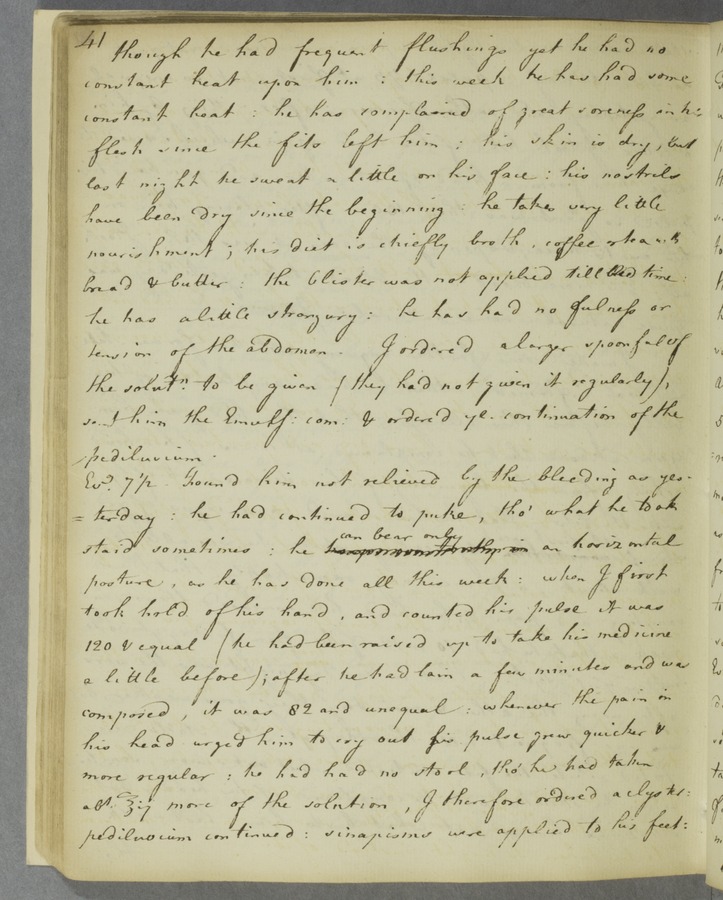 41
though he had frequent flushings yet he had no
constant heat upon him : this week he has had some
constant heat : he has complained of great soreness in his
flesh since the fits left him : his skin is dry, but
last night he sweat a little on his face : his nostrils
have been dry since the beginning : he takes very little
nourishment ; his diet is chiefly broth, coffee or tea with
bread & butter : the blister was not applied till bed time :
he has a little strangury : he has had no fulness or
tension of the abdomen. I ordered a larger spoonful of
the solutn. to be given (they had not given it regularly),
sent him the Emuls: com: & ordered ye. continuation of the
pediluvium.
Evg. 7 1/2. Found him not relieved by the bleeding as yes-
=terday : he had continued to puke, tho' what he took
can bear only
staid sometimes : he an horizontal
posture, as he has done all this week : when I first
took hold of his hand, and counted his pulse it was
120 & equal (he had been raised up to take his medicine
a little before) ; after he had lain a few minutes and was
composed, it was 82 and unequal : whenever the pain in
his head urged him to cry out his pulse grew quicker &
more regular : he had had no stool, tho' he had taken
abt. ℥ij more of the solution, I therefore ordered a clyster:
pediluvium continued : sinapisms were applied to his feet :